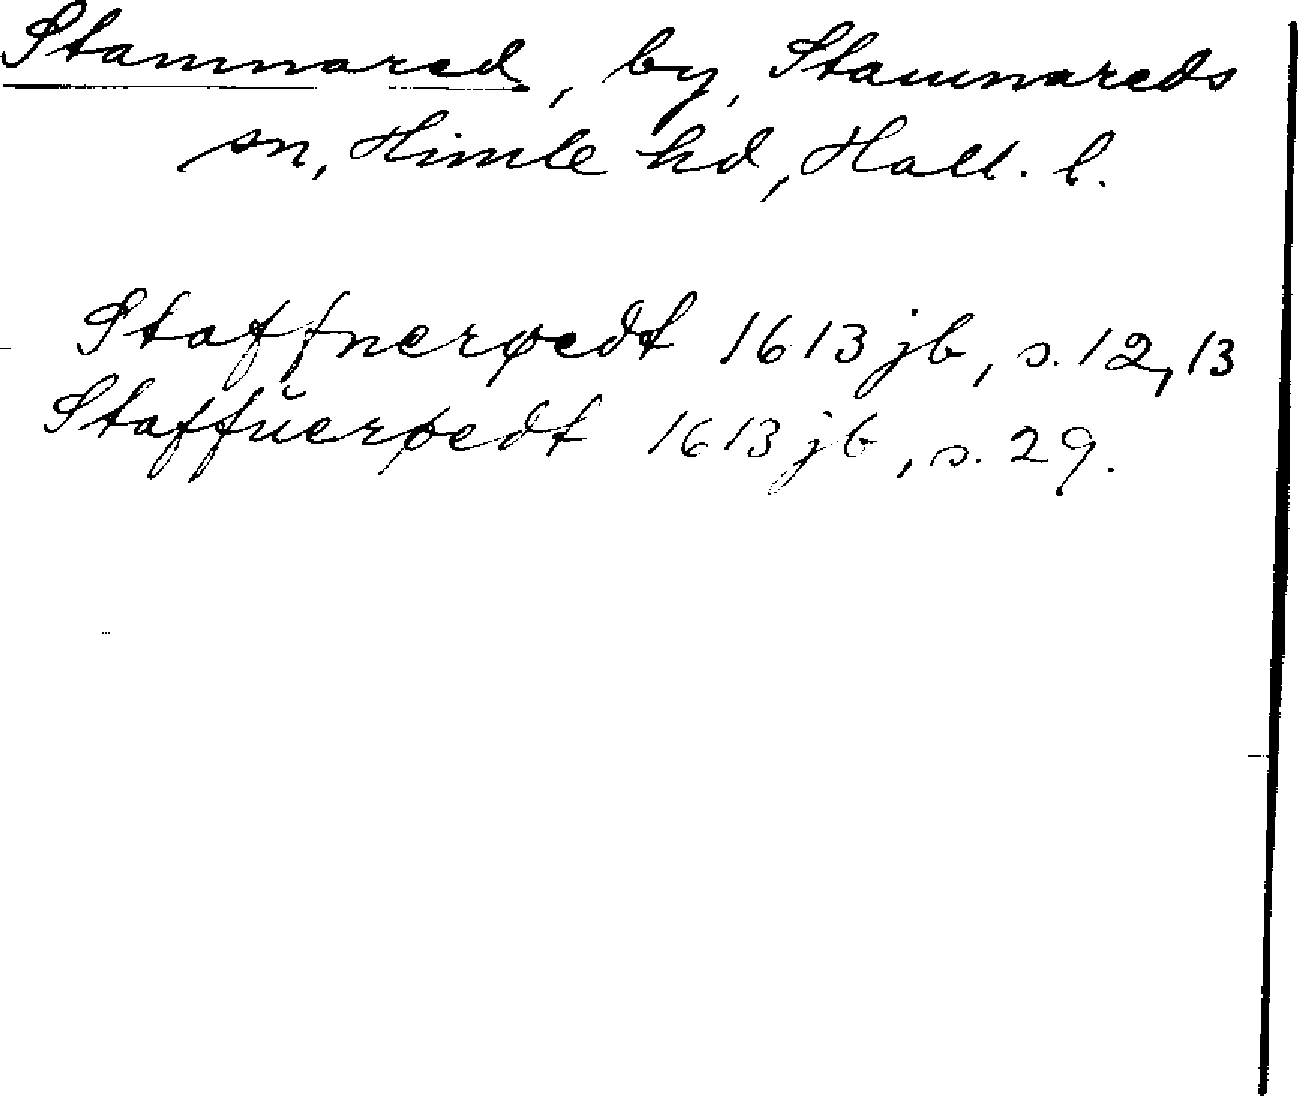 Stamnared, by, Stamnareds
sn, Himle hd, Hall. l.
Staffnerøedt 1613 jb, s. 12, 13
Staffŭerøedt 1613 jb, s. 29.